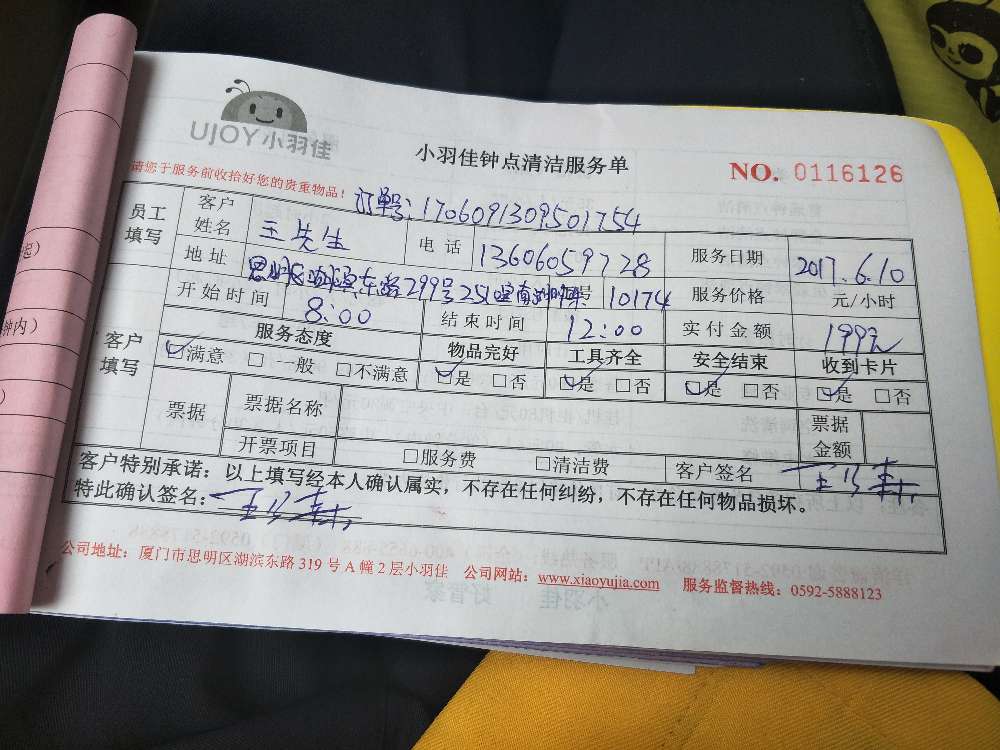 UJOY小羽佳
小羽佳钟点清洁服务单
NO. 0116126
请您于服务前收拾好您的贵重物品！
订单号:170609130950 1754
员工填写 客户姓名 王先生 电话 13606059728 服务日期 2017.6.10
地址 思明区湖滨东路299号251 号 10174 服务价格 元/小时
开始时间 8:00 结束时间 12:00 实付金额 199元
客户填写 服务态度 物品完好 工具齐全 安全结束 收到卡片
☑满意 □一般 □不满意 ☑是 □否 ☑是 □否 ☑是 □否 ☑是 □否
票据 票据名称 票据金额
开票项目 □服务费 □清洁费 客户签名
客户特别承诺：以上填写经本人确认属实，不存在任何纠纷，不存在任何物品损坏。
特此确认签名：
公司地址：厦门市思明区湖滨东路 319 号 A 幢 2 层小羽佳 公司网站：www.xiaoyujia.com 服务监督热线：0592-5888123
起）
钟内）